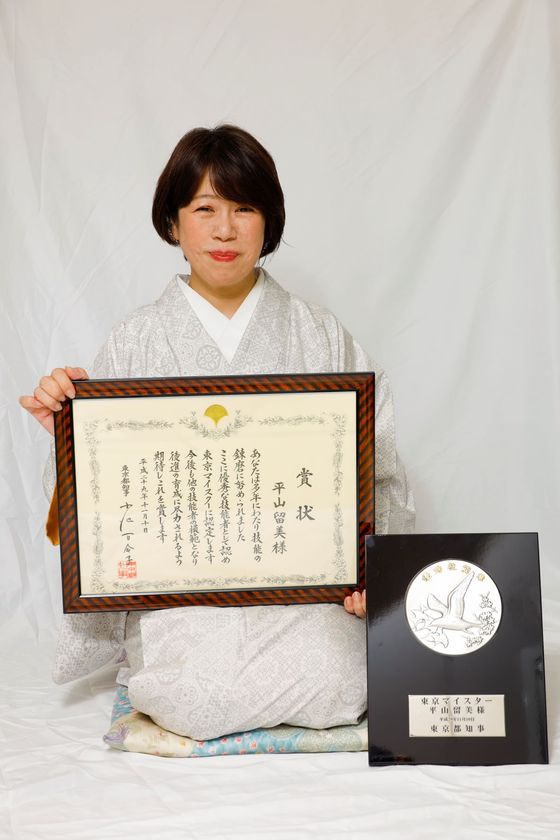 賞状
平山留美様
あなたは多年にわたり技能の
錬磨に努められました
ここに優秀な技能者として認め
東京マイスターに認定します
今後も他の技能者の模範となり
後進の育成に尽力されるよう
期待しこれを賞します
平成二十九年十一月十日
東京都知事 小池百合子
東京マイスター
平山留美様
東京都知事